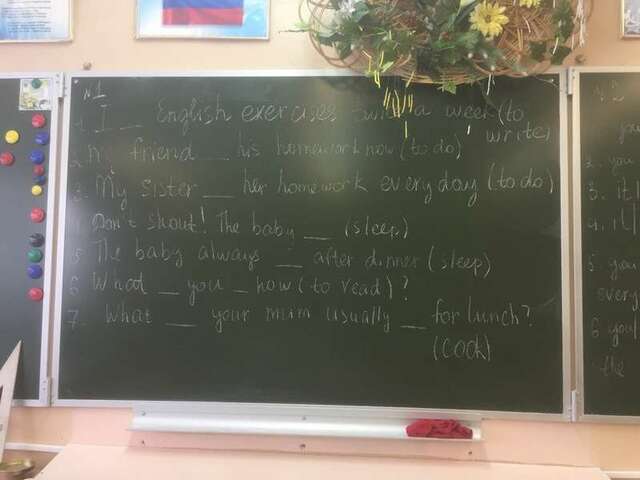 №1
1. I __ English exercises twice a week (to
write)
2. My friend __ his homework now (to do)
3. My sister __ her homework every day (to do)
4. Don't shout! The baby __ (sleep)
5. The baby always __ after dinner (sleep)
6 What _ you _ now (to read)?
7. What __ your mum usually __ for lunch?
(cook)
2. you
3. it
4. it
5. you
every
6 you
the